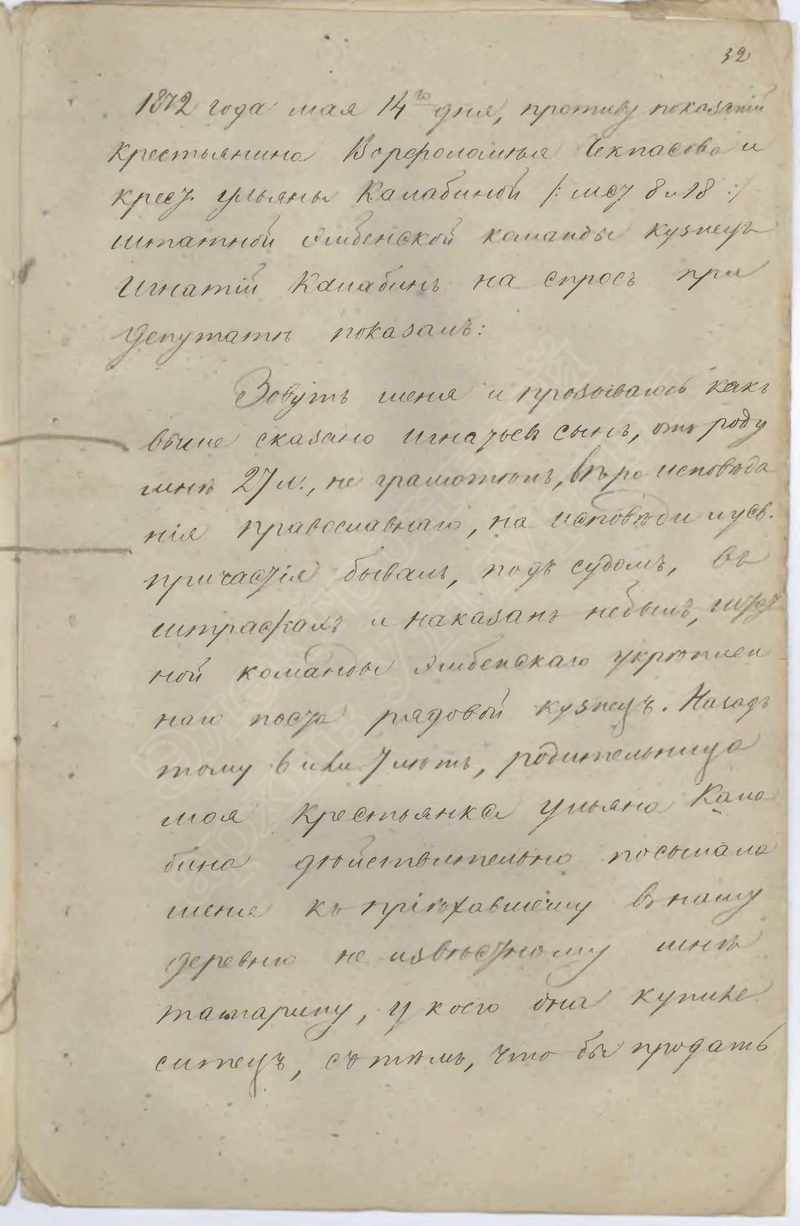 32
1872 года мая 14го дня, противу показаній
крестьянина Ворфоломья Чекпасова и
крест. Ульяны Калабиной /: лист 8 и 18 :/
штатной Ямбенской команды кузнецъ
Игнатій Калабинъ на спросъ при
депутатѣ показалъ:
Зовутъ меня и прозываюсь какъ
выше сказано Игнатьевъ сынъ, отъ роду
мнѣ 27 л., не грамотенъ, вѣро исповѣда
нія православнаго, на исповѣди и у св.
причастія бывалъ, подъ судомъ, въ
штрафахъ и наказанъ небылъ, штат
ной команды Ямбенскаго укрѣплен
наго поста рядовой кузнецъ. Назадъ
тому 6 или 7 лѣтъ, родительница
моя крестьянка Ульяна Кала
бина дѣйствительно посылала
меня къ пріѣхавшему въ нашу
деревню не извѣстному мнѣ
татарину, у коего она купила
ситецъ, съ тѣмъ, что бы продать